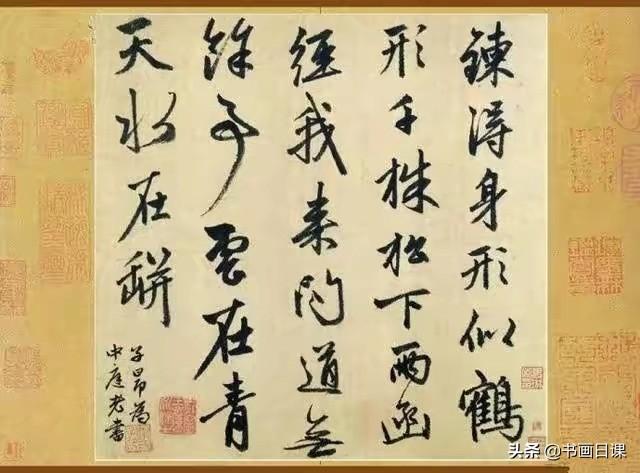 鍊得身形似鶴
形千株松下兩函
經我来問道無
餘事雲在青
天水在缾
子昂為
中庭老書
头条 @书画日课